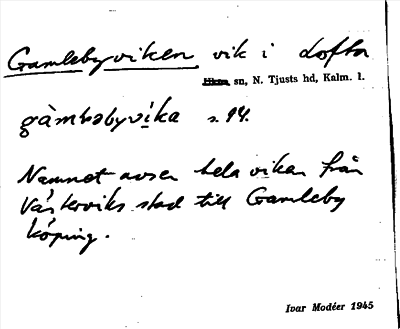 Gamlebyviken vik i Lofta
sn, N. Tjusts hd, Kalm. l.
gàmbəbyvíka s. 14.
Namnet avser hela viken från
Västerviks stad till Gamleby
köping.
Ivar Modéer 1945